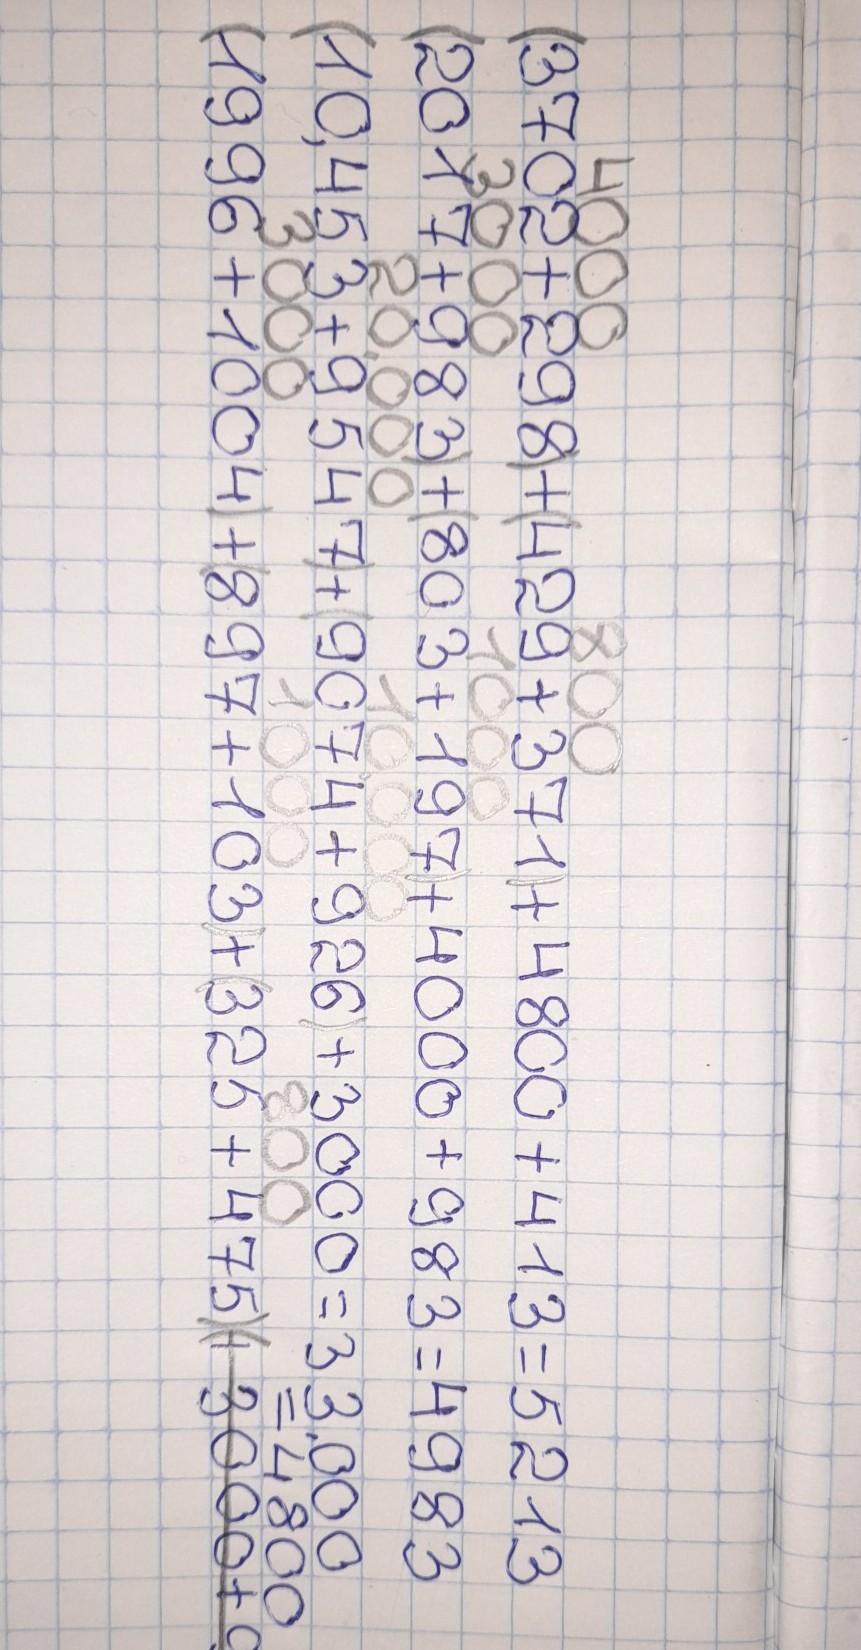 4000 800
(3702+298)+(429+371)+4800+413=5213
3000 1000
(2017+983)+(803+197)+4000+983=4983
20.000 10.000
(10,453+9547)+(9074+926)+3000=33.000
3000 1000 800 =4800
(1996+1004)+(897+103)+(325+475)+3000+